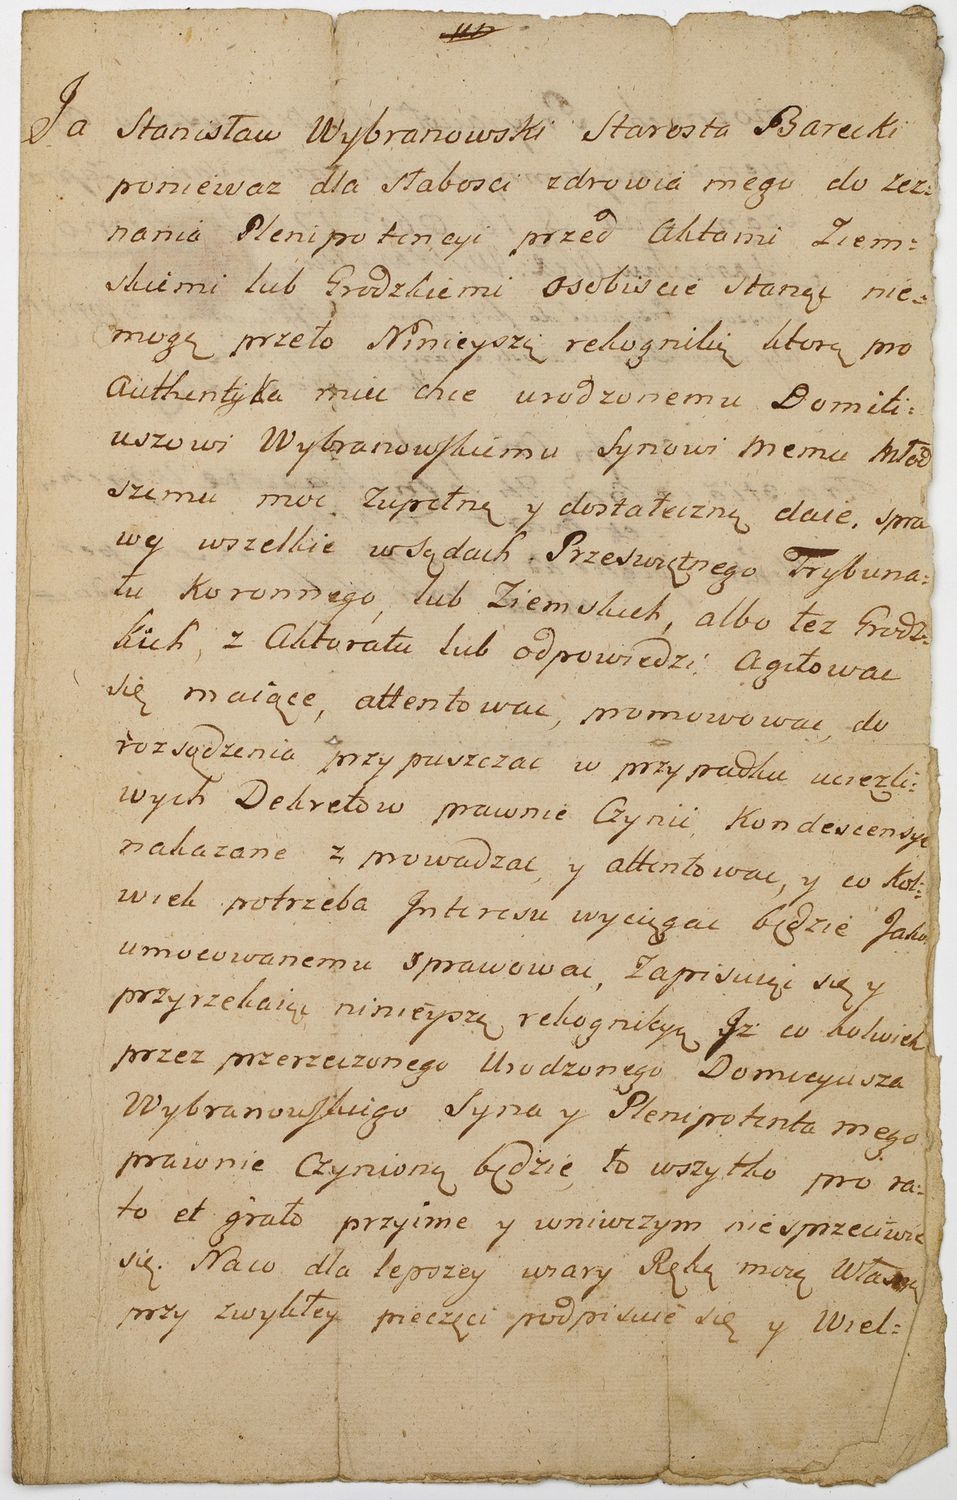 Ja Stanisław Wybranowski Starosta Barecki
poniewaz dla słabosci zdrowia mego do zez:
nania Plenipotencyi przed Aktami Ziem:
skiemi lub Grodzkiemi osobiscie stanąć nie:
mogę przeto Ninieyszą rekognikią ktorą pro
Authentyka miec chce urodzonemu Domiti:
uszowi Wybranowskiemu Synowi memu Młod
szemu moc Zupełną y dostateczną daie, spra
wy wszelkie w Sądach Przeswiętnego Trybuna:
łu Koronnego, lub Ziemskich, albo tez Grodz:
kich, z Aktoratu lub odpowiedzi Agitowac
się maiące, attentowac, promowowac, do
rozsądzenia przypuszczac w przypadku uciezli:
wych Dekretow prawnie Czynic, Kondescensye
nakazane z prowadzac, y attentowac, y co kol:
wiek potrzeba Interesu wyciągac będzie Jako
umocowanemu sprawowac, Zapisuię się y
przyrzekaię ninieyszą rekognikyą Iz co kolwiek
przez przerzeczonego Urodzonego Domicyusza
Wybranowskiego Syna y Plenipotenta mego
prawnie Czynioną będzie, to wszytko pro ra:
to et grato przyime y wniwczym niesprzeciwie
się. Naco dla lepszey wiary Ręką moią Własną
przy zwykłey pieczęci podpisuię się y Wiel: